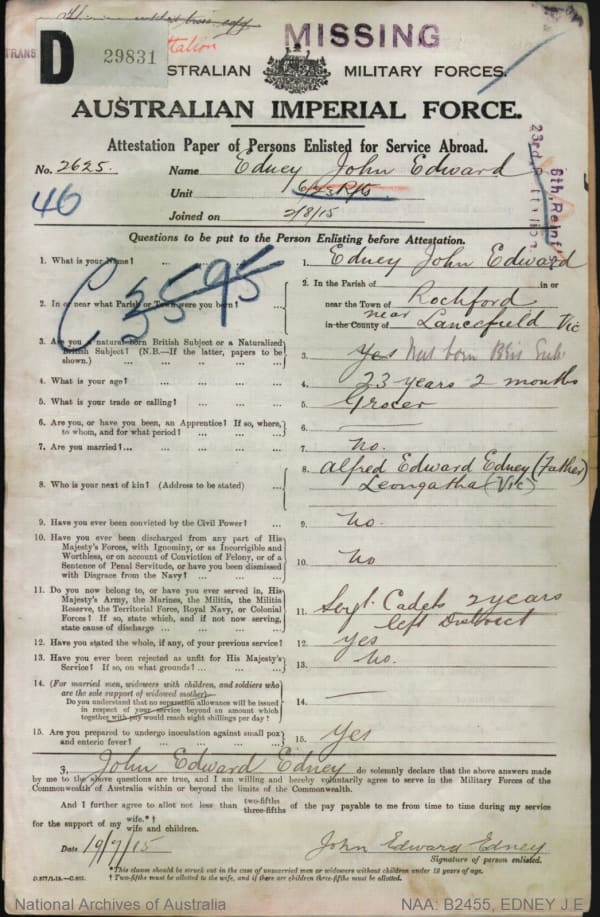 MISSING
TRANS
D
29831
AUSTRALIAN MILITARY FORCES.
AUSTRALIAN IMPERIAL FORCE.
Attestation Paper of Persons Enlisted for Service Abroad.
No. 2625. Name Edney John Edward
Unit 6/23 R/fts
46
Joined on 2/8/15
23rd Battalion
6th. Reinf.
Questions to be put to the Person Enlisting before Attestation.
C 3595
1. What is your Name? ... ... 1. Edney John Edward
2. In or near what Parish or Town were you born? ... 2. In the Parish of in or
near the Town of Rochford
near
in the County of Lancefield Vic
3. Are you a natural born British Subject or a Naturalized
British Subject? (N.B.—If the latter, papers to be
shown.) ... ... ... ... 3. Yes Nat born Bris Sub
4. What is your age? ... ... ... ... 4. 23 years 2 months
5. What is your trade or calling? ... ... ... 5. Grocer
6. Are you, or have you been, an Apprentice? If so, where,
to whom, and for what period? ... ... ... 6. —
7. Are you married?... ... ... ... ... 7. no.
8. Who is your next of kin? (Address to be stated) ... 8. Alfred Edward Edney (Father)
Leongatha (Vic)
9. Have you ever been convicted by the Civil Power? ... 9. no.
10. Have you ever been discharged from any part of His
Majesty's Forces, with Ignominy, or as Incorrigible and
Worthless, or on account of Conviction of Felony, or of a
Sentence of Penal Servitude, or have you been dismissed
with Disgrace from the Navy? ... ... ... 10. no
11. Do you now belong to, or have you ever served in, His
Majesty's Army, the Marines, the Militia, the Militia
Reserve, the Territorial Force, Royal Navy, or Colonial
Forces? If so, state which, and if not now serving,
state cause of discharge ... ... ... 11. Sergt. Cadets 2 years
left District
12. Have you stated the whole, if any, of your previous service? 12. yes
13. Have you ever been rejected as unfit for His Majesty's
Service? If so, on what grounds? ... ... 13. no.
14. (For married men, widowers with children, and soldiers who
are the sole support of widowed mother)—
Do you understand that no separation allowance will be issued
in respect of your service beyond an amount which
together with pay would reach eight shillings per day? 14. —
15. Are you prepared to undergo inoculation against small pox
and enteric fever? ... ... ... ... 15. Yes
I, John Edward Edney do solemnly declare that the above answers made
by me to the above questions are true, and I am willing and hereby voluntarily agree to serve in the Military Forces of the
Commonwealth of Australia within or beyond the limits of the Commonwealth.
And I further agree to allot not less than two-fifths three-fifths of the pay payable to me from time to time during my service
for the support of my wife.*†
wife and children.
Date 19/7/15 John Edward Edney
Signature of person enlisted.
*This clause should be struck out in the case of unmarried men or widowers without children under 18 years of age.
† Two-fifths must be allotted to the wife, and if there are children three-fifths must be allotted.
National Archives of Australia NAA: B2455, EDNEY J E